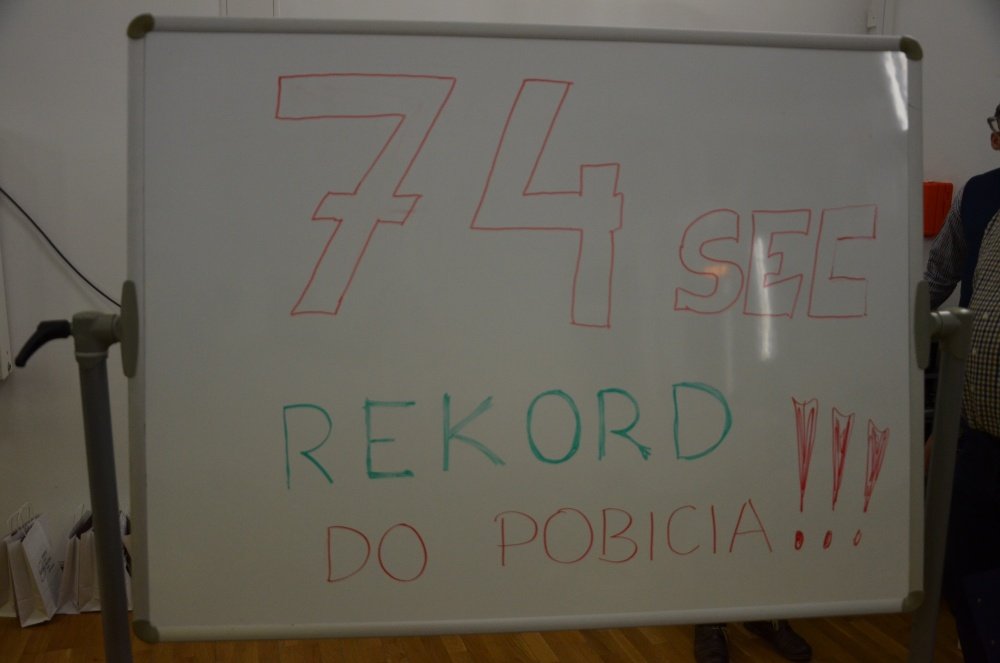 74 SEC
REKORD
DO POBICIA !!!